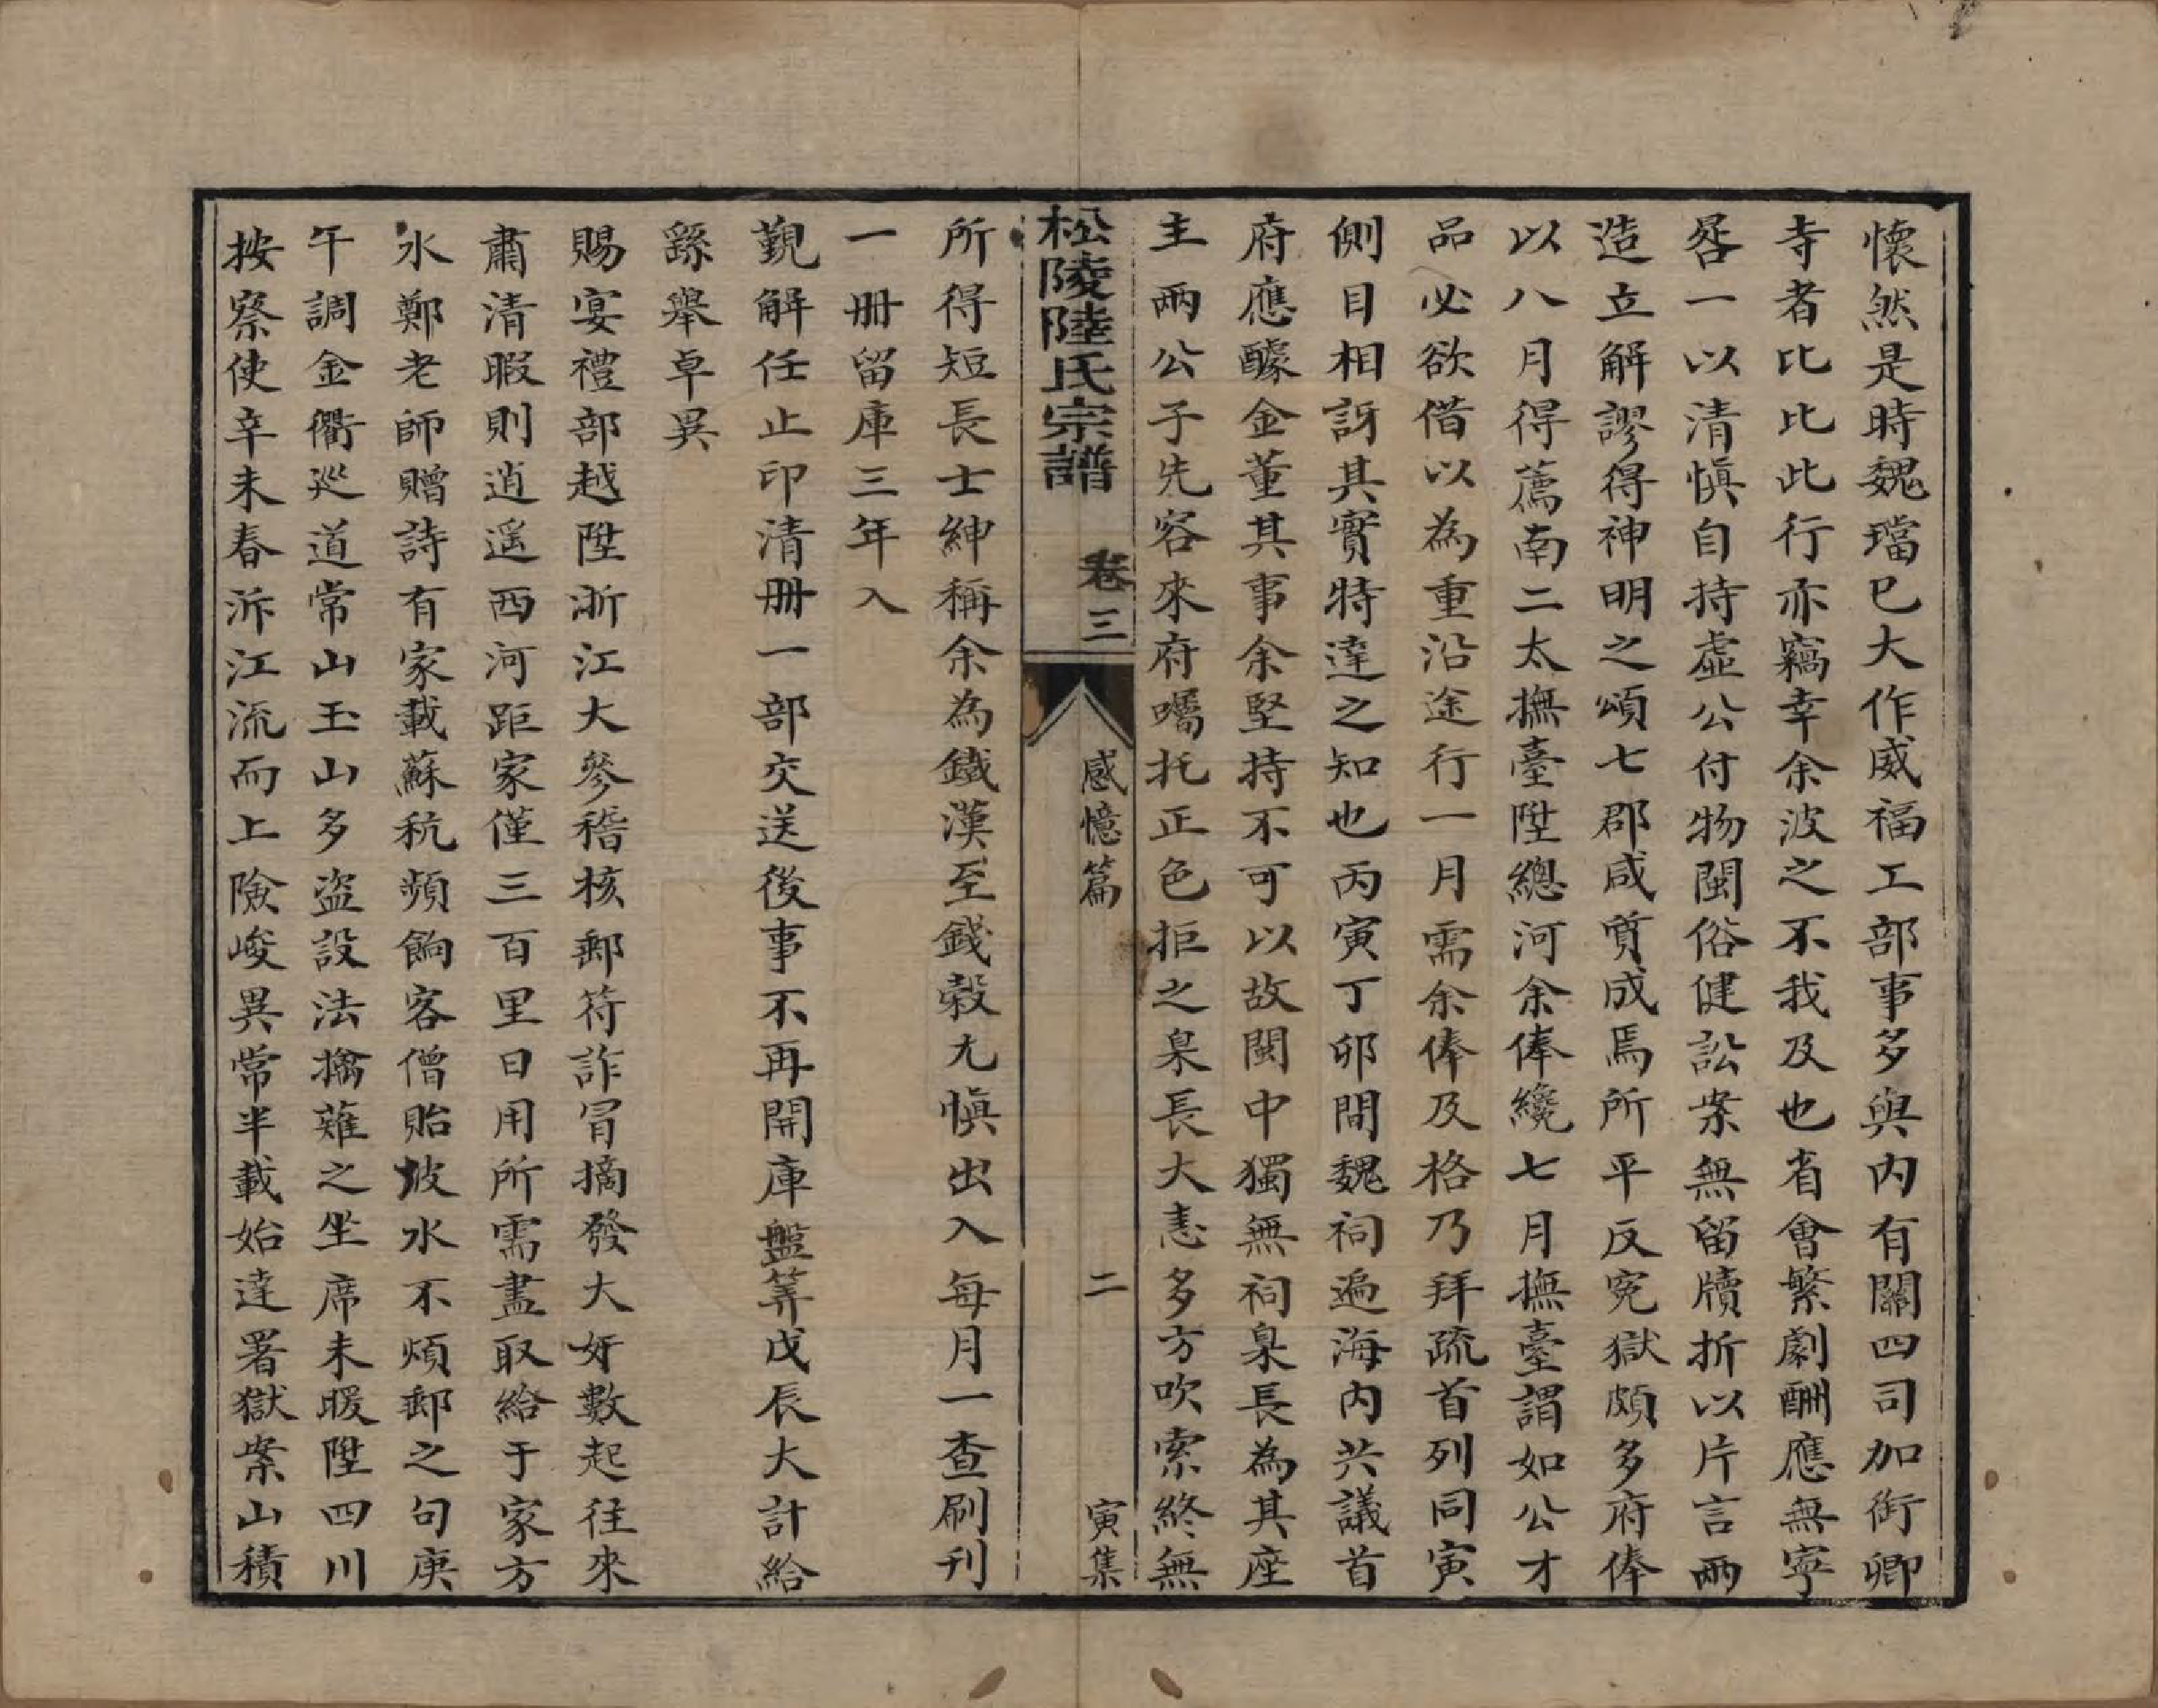 懷然是時魏璫已大作威福工部事多與內有關四司加銜卿
寺者比比此行亦竊幸余波之不我及也省會繁劇酬應無寧
晷一以清愼自持虛公付物閩俗健訟案無留牘折以片言兩
造立解謬得神明之頌七郡咸質成焉所平反寃獄頗多府俸
以八月得薦南二太撫臺陞總河余俸纔七月撫臺謂如公才
品必欲借以為重沿途行一月需余俸及格乃拜疏首列同寅
側目相訝其實特達之知也丙寅丁卯間魏祠遍海內共議首
府應醵金董其事余堅持不可以故閩中獨無祠臬長為其座
主兩公子先容來府囑托正色拒之臬長大恚多方吹索終無
松陵陸氏宗譜 卷三 感憶篇 二 寅集
所得短長士紳稱余為鐵漢至錢穀尤愼出入每月一查刷刊
一冊留庫三年入
覲解任止印清冊一部交送後事不再開庫盤筭戊辰大計給
繇舉卓異
賜宴禮部越陞浙江大參稽核郵符詐冒摘發大奸數起往來
肅清暇則逍遥西河距家僅三百里日用所需盡取給于家方
水鄭老師贈詩有家載蘇秔頻餉客僧貽坡水不煩郵之句庚
午調金衢巡道常山玉山多盜設法擒薙之坐席未暖陞四川
按察使辛未春泝江流而上險峻異常半載始達署獄案山積